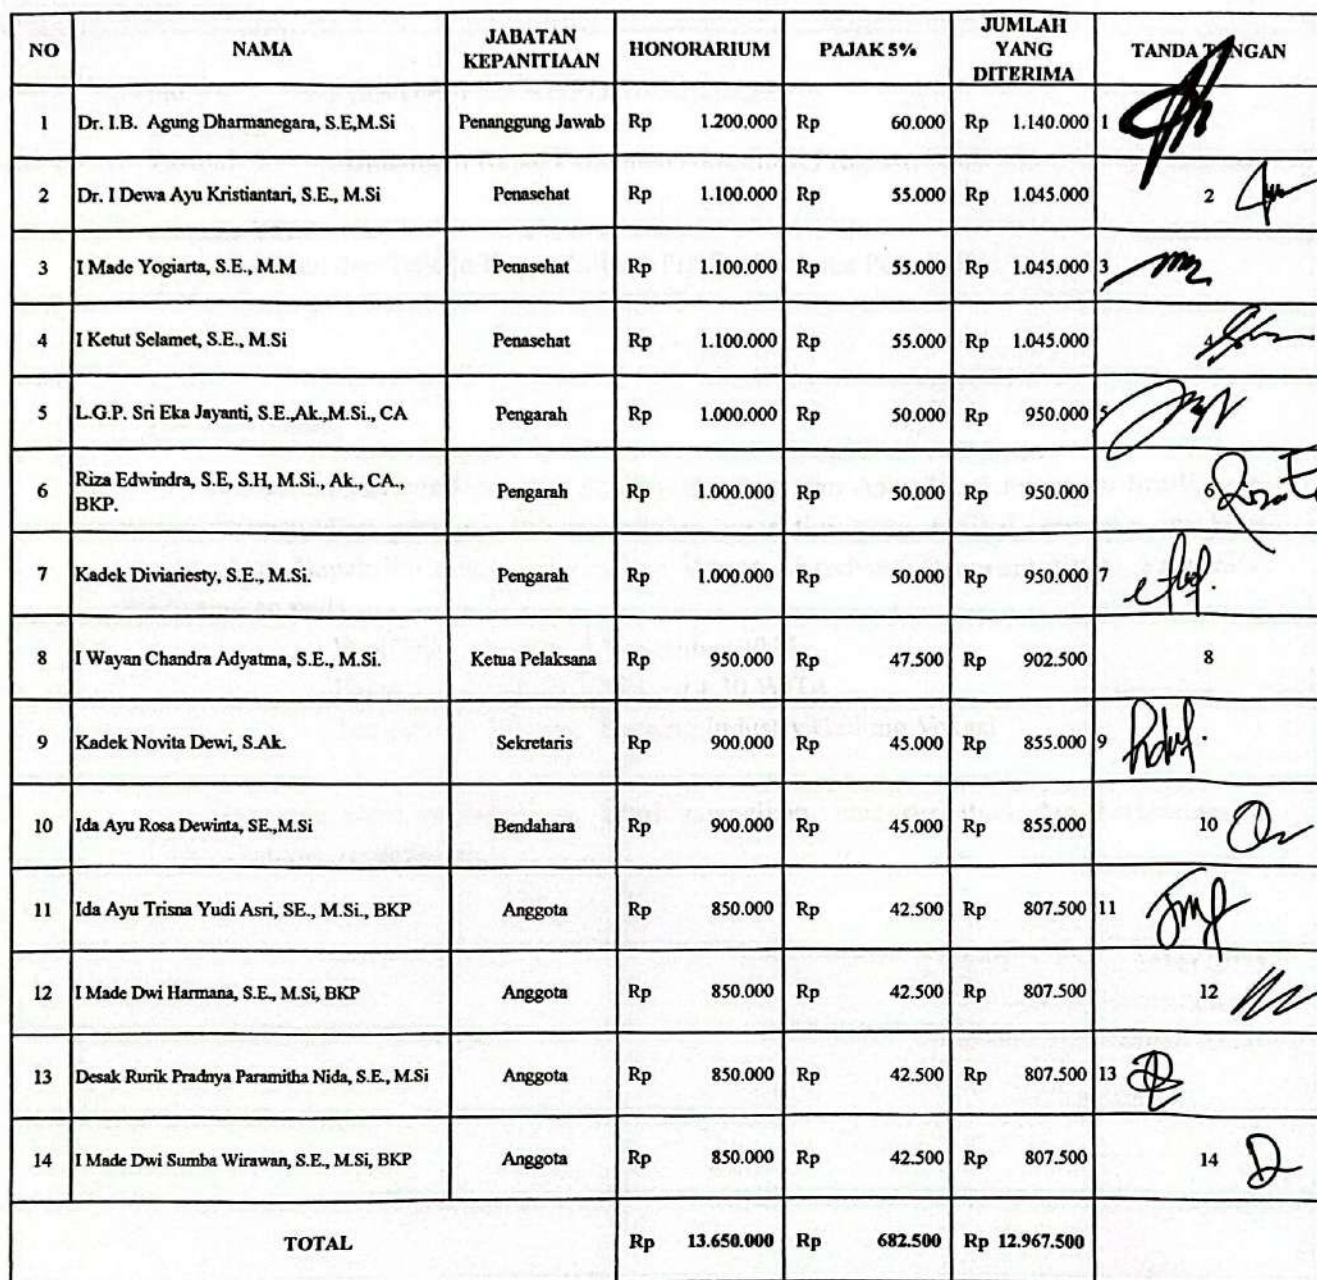 NO NAMA JABATAN KEPANITIAAN HONORARIUM PAJAK 5% JUMLAH YANG DITERIMA TANDA TANGAN
1 Dr. I.B. Agung Dharmanegara, S.E,M.Si Penanggung Jawab Rp 1.200.000 Rp 60.000 Rp 1.140.000 1
2 Dr. I Dewa Ayu Kristiantari, S.E., M.Si Penasehat Rp 1.100.000 Rp 55.000 Rp 1.045.000 2
3 I Made Yogiarta, S.E., M.M Penasehat Rp 1.100.000 Rp 55.000 Rp 1.045.000 3
4 I Ketut Selamet, S.E., M.Si Penasehat Rp 1.100.000 Rp 55.000 Rp 1.045.000 4
5 L.G.P. Sri Eka Jayanti, S.E.,Ak.,M.Si., CA Pengarah Rp 1.000.000 Rp 50.000 Rp 950.000 5
6 Riza Edwindra, S.E, S.H, M.Si., Ak., CA.,
BKP. Pengarah Rp 1.000.000 Rp 50.000 Rp 950.000 6
7 Kadek Diviariesty, S.E., M.Si. Pengarah Rp 1.000.000 Rp 50.000 Rp 950.000 7
8 I Wayan Chandra Adyatma, S.E., M.Si. Ketua Pelaksana Rp 950.000 Rp 47.500 Rp 902.500 8
9 Kadek Novita Dewi, S.Ak. Sekretaris Rp 900.000 Rp 45.000 Rp 855.000 9
10 Ida Ayu Rosa Dewinta, SE.,M.Si Bendahara Rp 900.000 Rp 45.000 Rp 855.000 10
11 Ida Ayu Trisna Yudi Asri, SE., M.Si., BKP Anggota Rp 850.000 Rp 42.500 Rp 807.500 11
12 I Made Dwi Harmana, S.E., M.Si, BKP Anggota Rp 850.000 Rp 42.500 Rp 807.500 12
13 Desak Rurik Pradnya Paramitha Nida, S.E., M.Si Anggota Rp 850.000 Rp 42.500 Rp 807.500 13
14 I Made Dwi Sumba Wirawan, S.E., M.Si, BKP Anggota Rp 850.000 Rp 42.500 Rp 807.500 14
TOTAL Rp 13.650.000 Rp 682.500 Rp 12.967.500